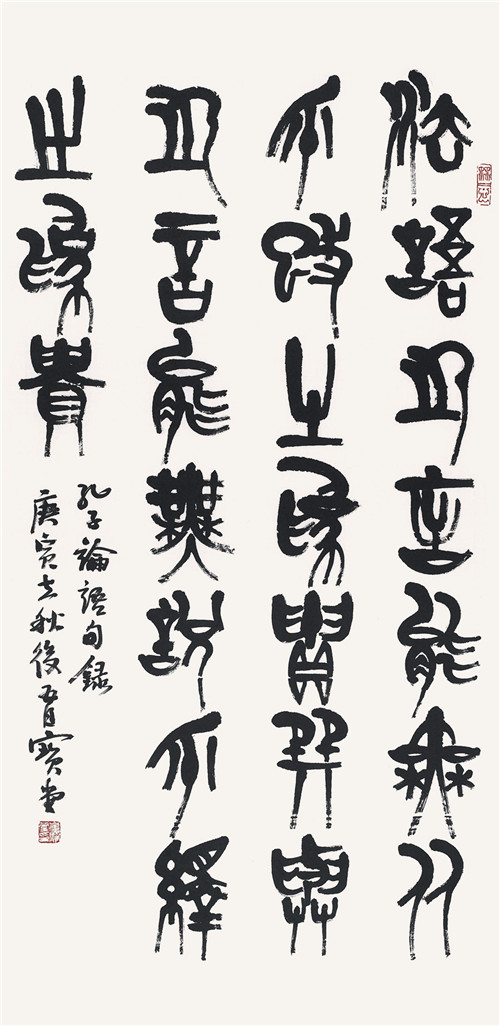 法語之言能無从
乎改之為貴巽與
之言能無說乎繹
之為貴
孔子論語句錄
庚寅立秋後五日寶